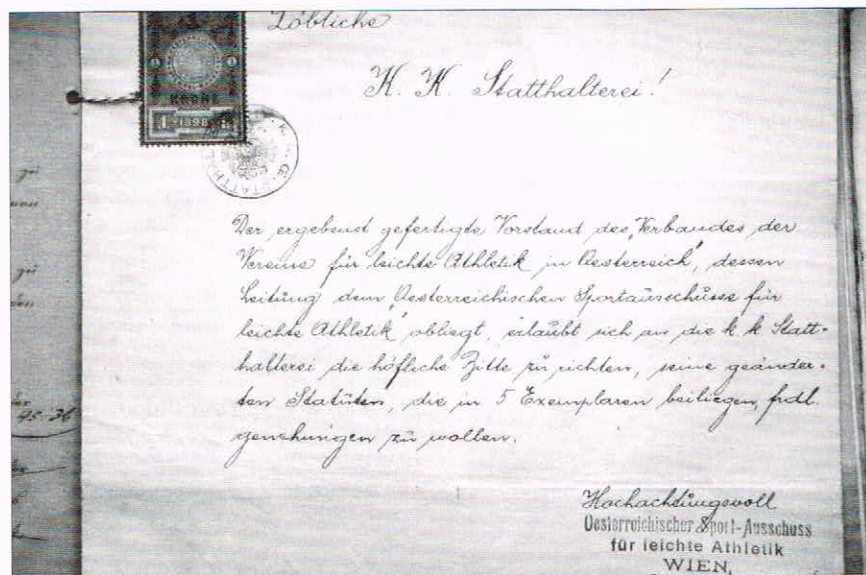 Löbliche
K. K. Statthalterei!
1 1898
Der ergebenst gefertigte Vorstand des "Verbandes der
Vereine für leichte Athletik in Oesterreich", dessen
Leitung dem "Oesterreichischen Sportausschusse für
leichte Athletik" obliegt, erlaubt sich an die k. k. Statt-
halterei die höfliche Bitte zu richten, seine geänder-
ten Statuten, die in 5 Exemplaren beiliegen, frdl.
genehmigen zu wollen.
Hochachtungsvoll
Oesterreichischer Sport-Ausschuss
für leichte Athletik
WIEN,